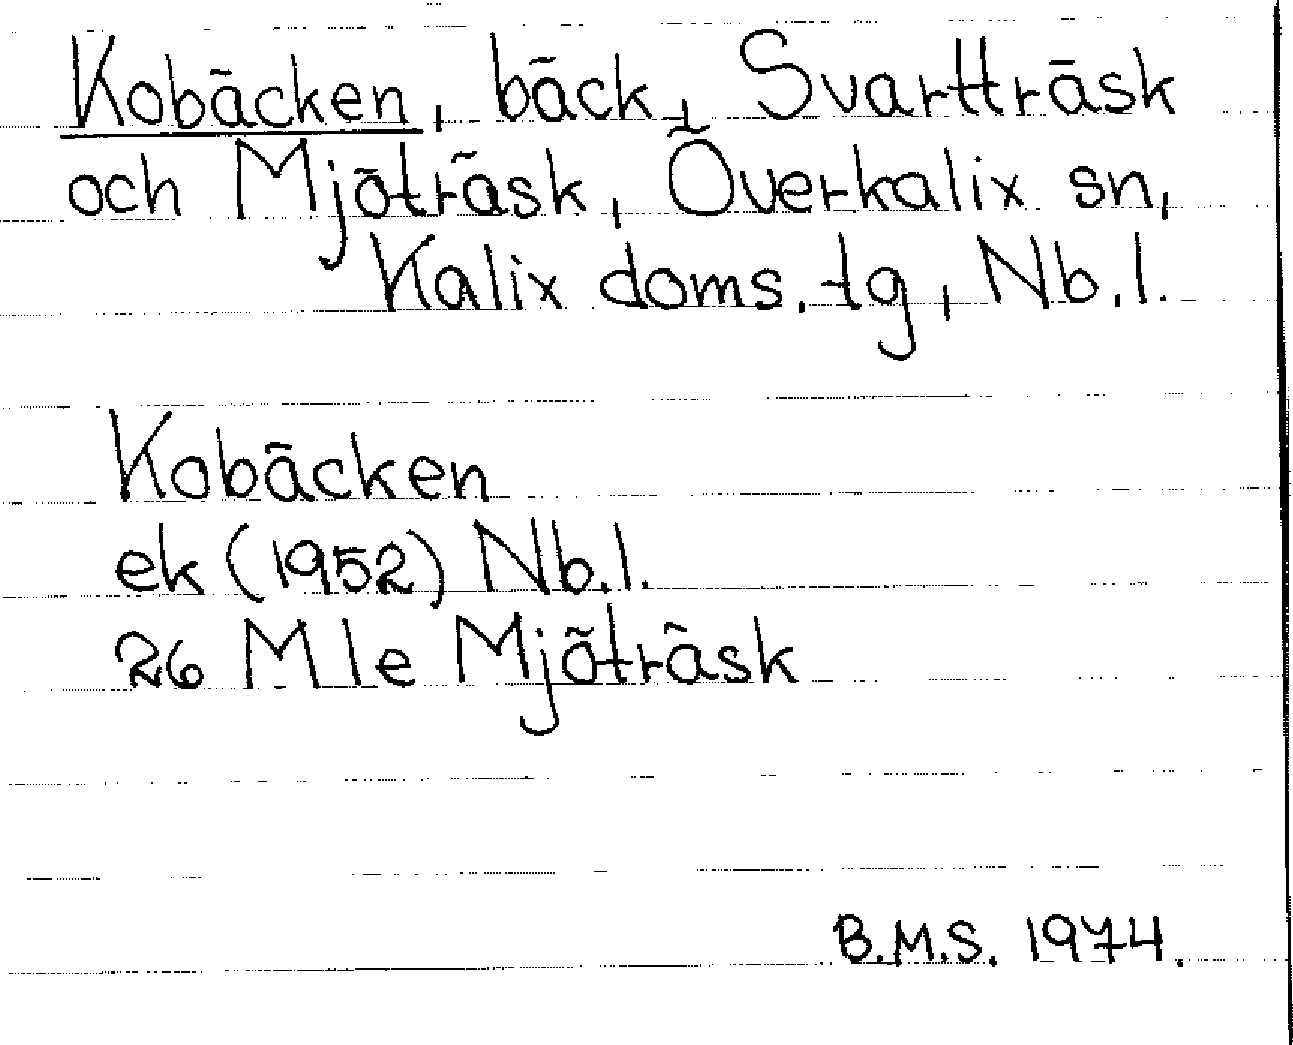 Kobäcken, bäck, Svartträsk
och Mjöträsk, Överkalix sn,
Kalix doms.tg, Nb.l.
Kobäcken
ek (1952) Nb.l.
26 M le Mjöträsk
B.M.S. 1974.